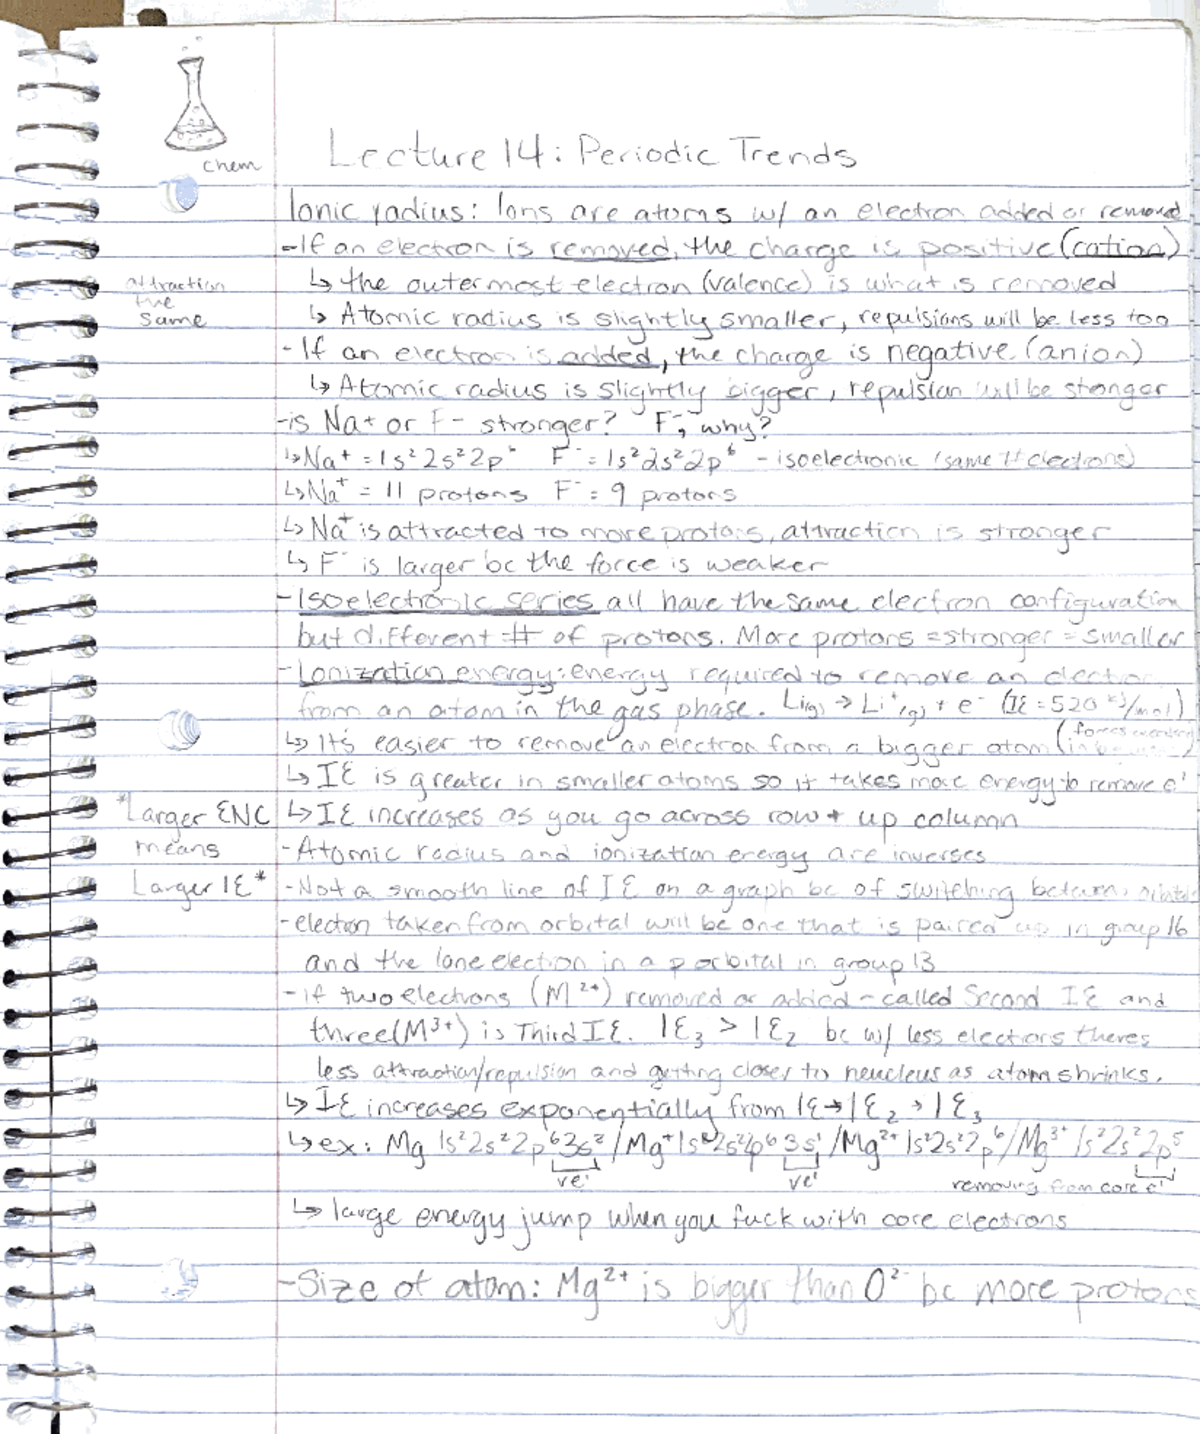 chem
Lecture 14: Periodic Trends
Ionic radius: Ions are atoms w/ an electron added or removed
-If an electron is removed, the charge is positive (cation)
attraction the same
↳ the outermost electron (valence) is what is removed
↳ Atomic radius is slightly smaller, repulsions will be less too
-If an electron is added, the charge is negative (anion)
↳ Atomic radius is slightly bigger, repulsion will be stronger
-is Na+ or F- stronger? F⁻, why?
↳ Na⁺ = 1s² 2s² 2p⁶ F⁻ = 1s² 2s² 2p⁶ - isoelectronic (same # electrons)
↳ Na⁺ = 11 protons F⁻ = 9 protons
↳ Na⁺ is attracted to more protons, attraction is stronger
↳ F⁻ is larger bc the force is weaker
-Isoelectronic series all have the same electron configuration
but different # of protons. More protons = stronger = smaller
-Ionization energy: energy required to remove an electron
from an atom in the gas phase. Li(g) → Li⁺(g) + e⁻ (IE = 520 kJ/mol)
↳ It's easier to remove an electron from a bigger atom (forces
↳ IE is greater in smaller atoms so it takes more energy to remove e⁻
*Larger ENC means Larger IE*
↳ IE increases as you go across row + up column
-Atomic radius and ionization energy are inverses
-Not a smooth line of IE on a graph bc of switching between
-electron taken from orbital will be one that is paired up in group 16
and the lone electron in a p orbital in group 13
-if two electrons (M²⁺) removed or added - called Second IE and
three (M³⁺) is Third IE. IE₃ > IE₂ bc w/ less electrons theres
less attraction/repulsion and getting closer to neucleus as atom shrinks.
↳ IE increases exponentially from IE → IE₂ → IE₃
↳ ex: Mg 1s² 2s² 2p⁶ 3s² / Mg⁺ 1s² 2s² 2p⁶ 3s¹ / Mg²⁺ 1s² 2s² 2p⁶ / Mg³⁺ 1s² 2s² 2p⁵
ve⁻ ve⁻ removing from core e⁻
↳ large energy jump when you fuck with core electrons
-Size of atom: Mg²⁺ is bigger than O²⁻ bc more protons